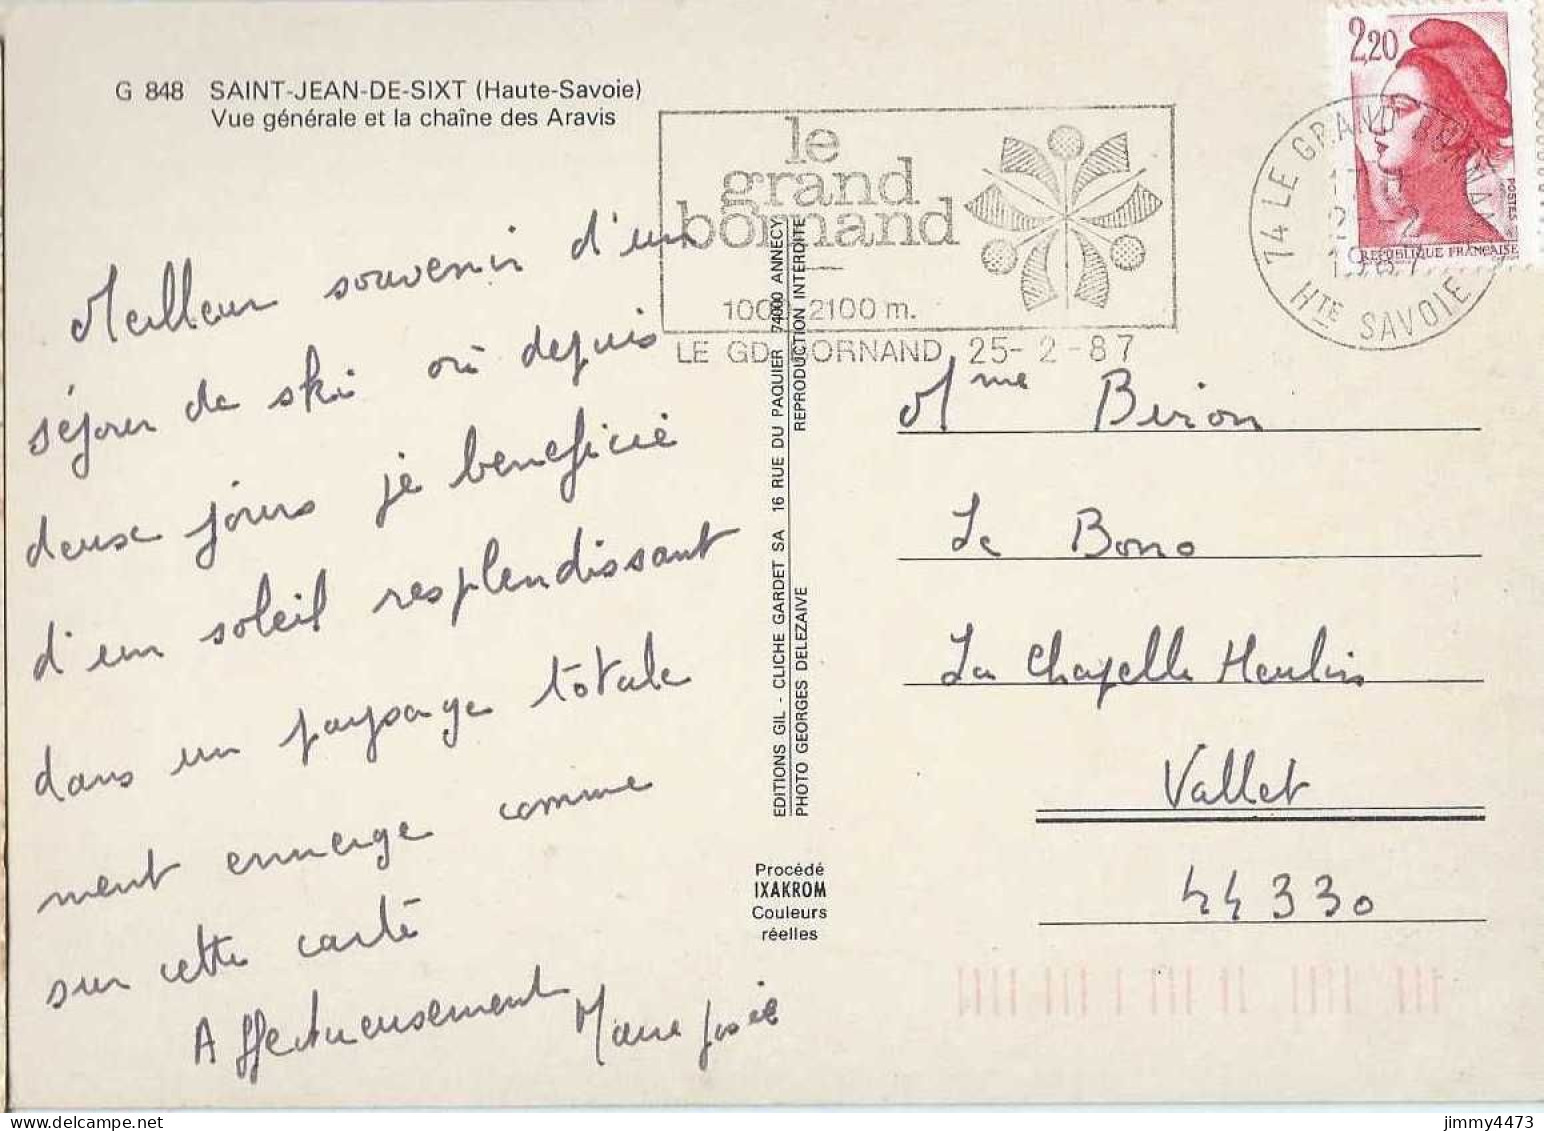 G 848 SAINT-JEAN-DE-SIXT (Haute-Savoie)
Vue générale et la chaîne des Aravis
le
grand
bornand
1000-2100 m.
LE GD BORNAND 25-2-87
2,20
POSTES
REPUBLIQUE FRANÇAISE
74 LE GRAND BORNAND
1987
HTE SAVOIE
Meilleur souvenir d'un
séjour de ski où depuis
deux jours je beneficie
d'un soleil resplendissant
dans un paysage totale
ment enneigé comme
sur cette carte
Affectueusement Marie Josée
EDITIONS GIL - CLICHE GARDET SA 16 RUE DU PAQUIER 74000 ANNECY
PHOTO GEORGES DELEZAIVE REPRODUCTION INTERDITE
Procédé
IXAKROM
Couleurs
réelles
Mme Biron
Le Bono
La Chapelle Heulin
Vallet
44330
jimmy4473